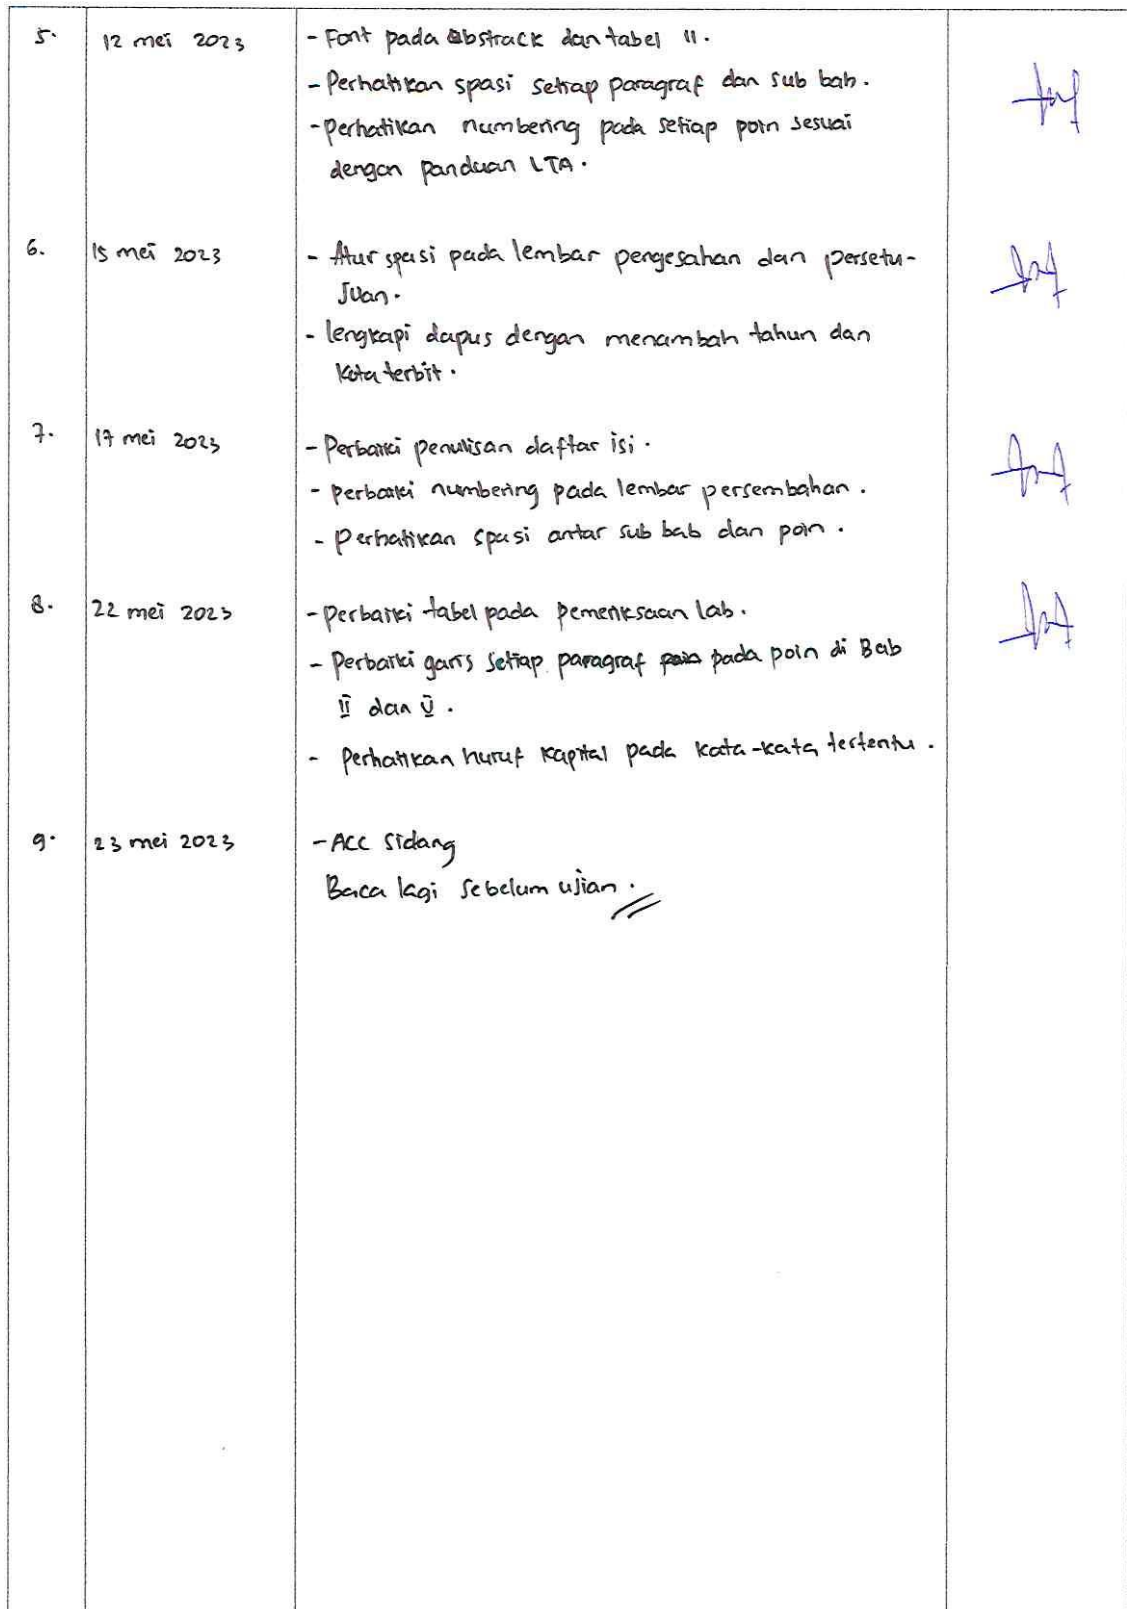 5. 12 mei 2023 - Font pada abstrack dan tabel 11.
- Perhatikan spasi setiap paragraf dan sub bab.
- perhatikan numbering pada setiap poin sesuai
dengan panduan LTA.
6. 15 mei 2023 - Atur spasi pada lembar pengesahan dan persetu-
Juan.
- lengkapi dapus dengan menambah tahun dan
kota terbit.
7. 17 mei 2023 - Perbaiki penulisan daftar isi.
- perbaiki numbering pada lembar persembahan.
- perhatikan spasi antar sub bab dan poin.
8. 22 mei 2023 - perbaiki tabel pada pemeriksaan lab.
- Perbaiki garis setiap paragraf pada poin di Bab
II dan V.
- Perhatikan huruf kapital pada kata-kata tertentu.
9. 23 mei 2023 - ACC Sidang
Baca lagi sebelum ujian.